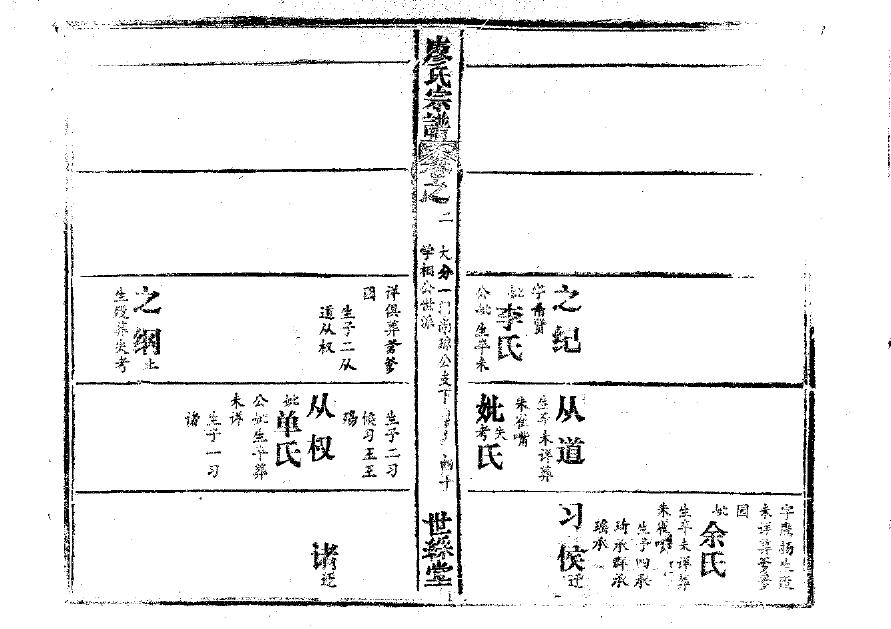 廖氏宗譜
卷之
二
大分一门尚琼公支下
学相公世派
世䌽堂
之纪
字希贤
妣李氏
公妣生卒未
详俱葬箬箩
园
生子二从
道从权
之纲
生殁葬失考
从道
生卒未详葬
朱雀嘴
妣失考氏
生子二习
侯习王王
殇
从权
妣单氏
公妣生卒葬
未详
生子一习
诸
字庚扬生殁
未详葬箬箩
园
妣余氏
生卒未详葬
朱雀嘴
生子四承
琦承群承
瑞承
习侯迁
诸迁